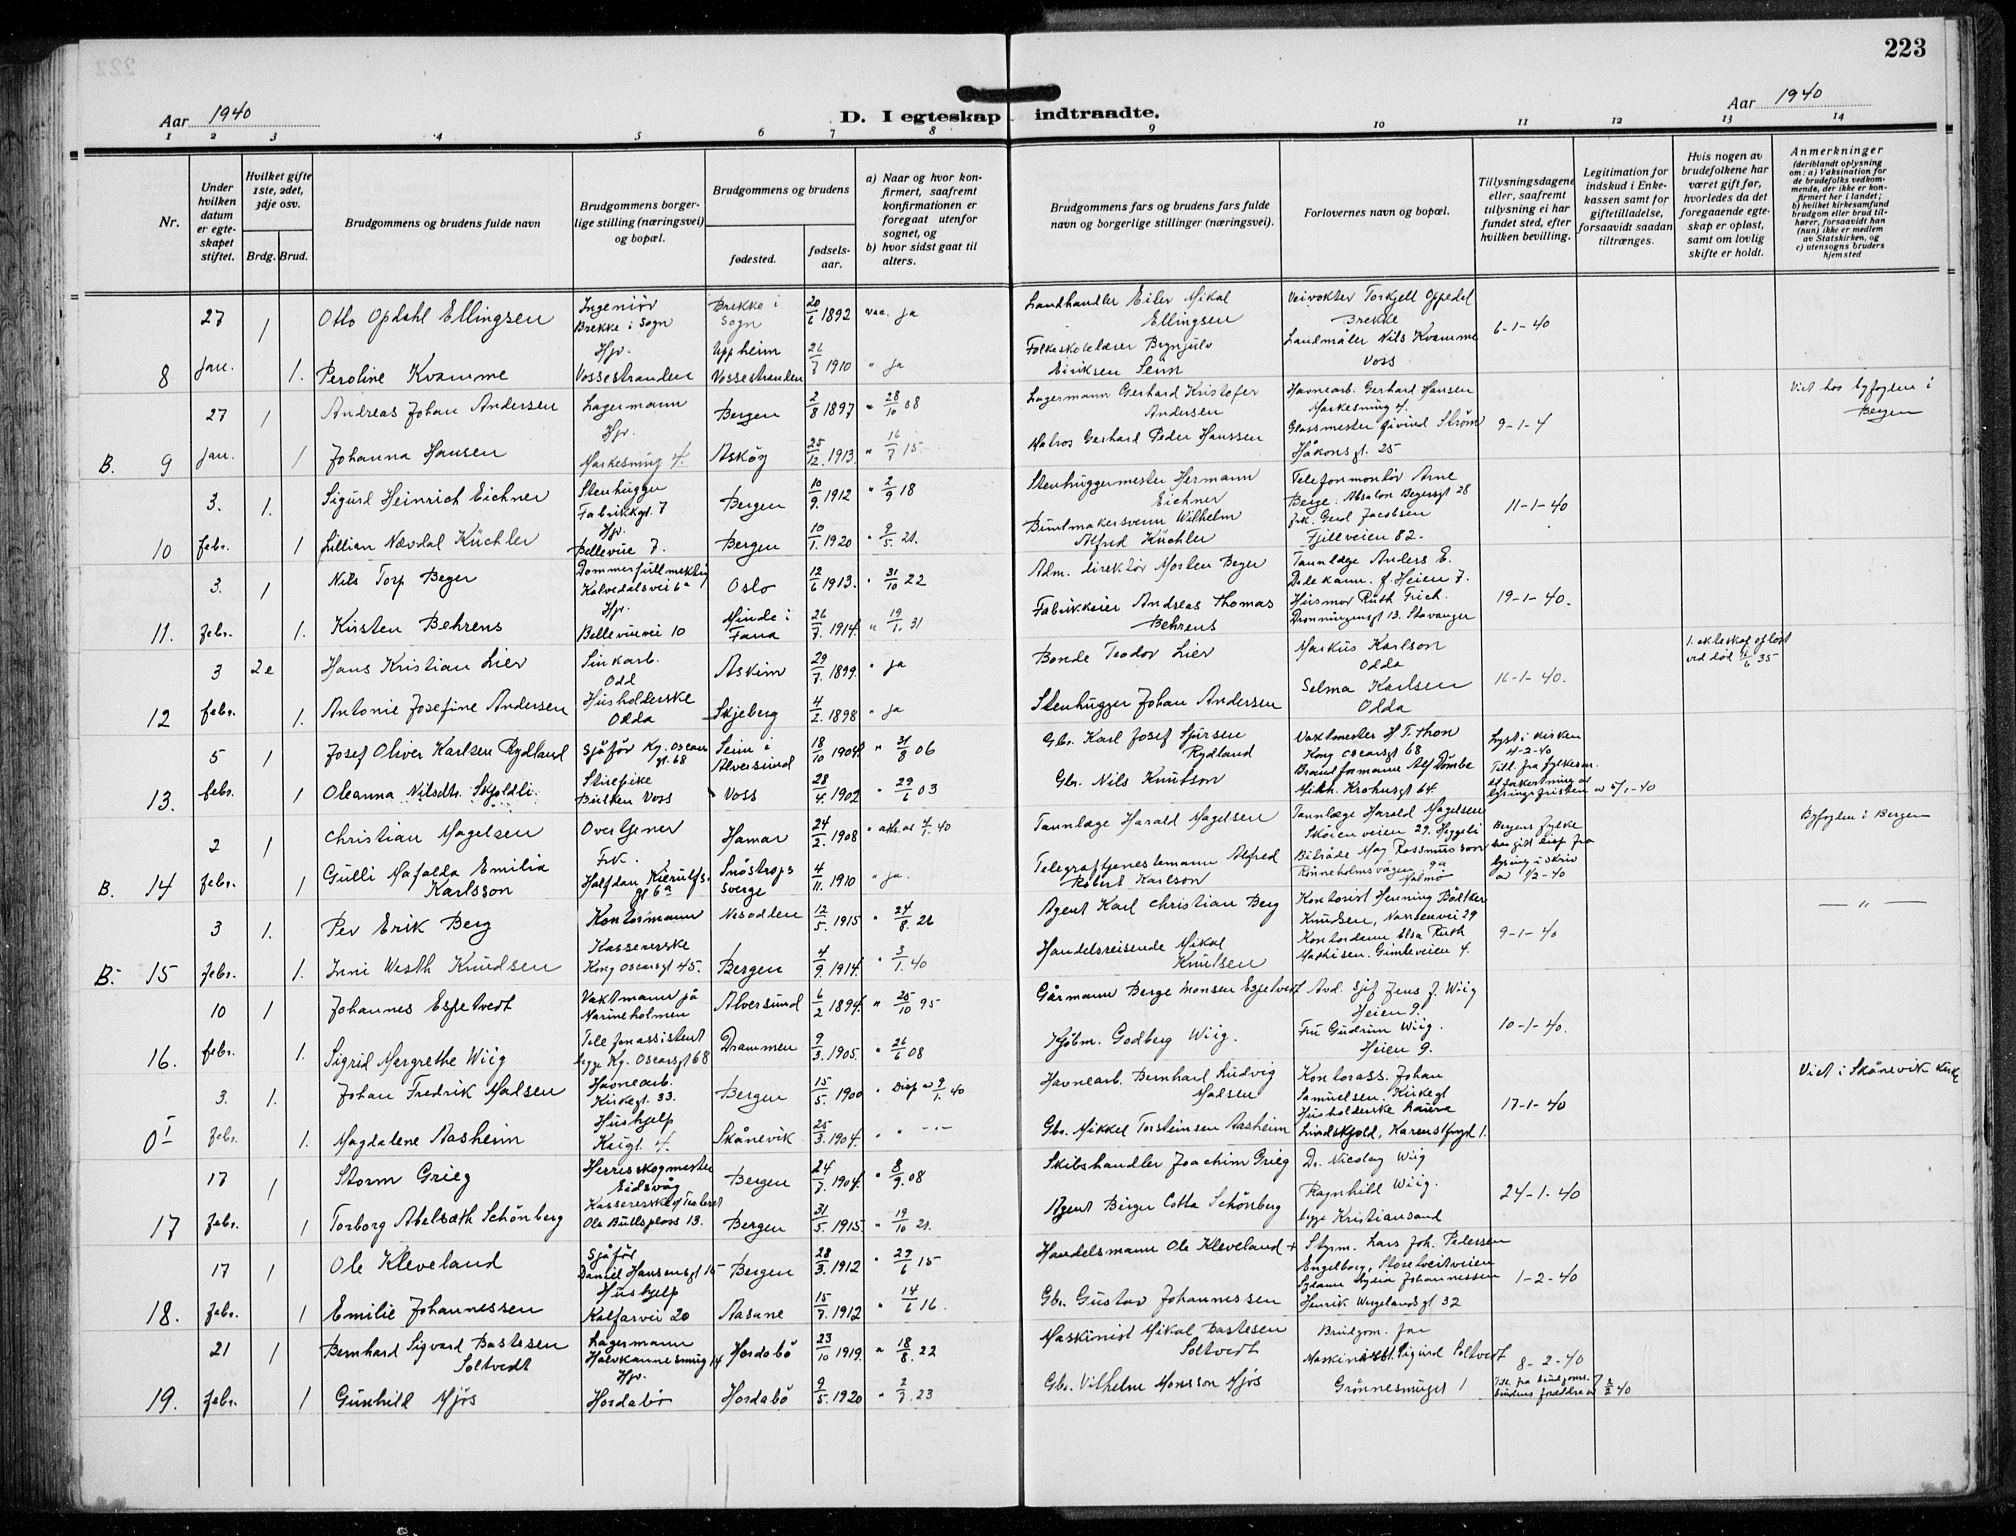 223
Aar 1940
D. I egteskap indtraadte.
Aar 1940
1 2 3 4 5 6 7 8 9 10 11 12 13 14
Nr.
Under hvilken datum er egteskapet stiftet.
Hvilket gifte 1ste, 2det, 3dje osv.
Brdg. Brud.
Brudgommens og brudens fulde navn
Brudgommens borgerlige stilling (næringsvei) og bopæl.
Brudgommens og brudens
fødested.
fødselsaar.
a) Naar og hvor konfirmert, saafremt konfirmationen er foregaat utenfor sognet, og
b) hvor sidst gaat til alters.
Brudgommens fars og brudens fars fulde navn og borgerlige stillinger (næringsvei).
Forlovernes navn og bopæl.
Tillysningsdagene eller, saafremt tillysning ei har fundet sted, efter hvilken bevilling.
Legitimation for indskud i Enkekassen samt for giftetilladelse, forsaavidt saadan tiltrænges.
Hvis nogen av brudefolkene har været gift før, hvorledes da det foregaaende egteskap er opløst, samt om lovlig skifte er holdt.
Anmerkninger
(deriblandt oplysning om: a) Vaksination for de brudefolks vedkommende, der ikke er konfirmert her i landet; b) hvilket kirkesamfund brudgom eller brud tilhører, forsaavidt han (hun) ikke er medlem av Statskirken, og c) utensogns bruders hjemsted
27 1 Otto Opdahl Ellingsen Ingeniör Brekke i Sogn Brekke i Sogn 20/6 1892 vac. ja Landhandler Eiler Mikal Ellingsen Veivokter Torkjell Oppedal Brekke 6-1-40
8 Jan. 1. Peroline Kvamme Hjv. Vossestranden Uppheim Vossestranden 1910 " ja Folkeskolelærer Brynjulv Eiriksen Landmåler Nils Kvamme Voss
27 1 Andreas Johan Andersen Lagermann Bergen 2/8 1897 " 28/10 08 Lagermann Gerhard Kristofer Andersen Havnearb. Gerhard Hansen Markesmug 4. 9-1-4 Viet hos byfogden i Bergen
B. 9 Jan. 1 Johanna Hansen Hjv. Markesmug 4. Askøy 25/12 1913. " 16/7 15. Matros Gerhard Peder Hanssen Glassmester Øivind Strøm Håkonsgt. 25
3. 1. Sigurd Heinrich Eichner Stenhugger Fabrikkgt. 7 Bergen 10/9 1912 " 2/9 18 Stenhuggermester Hermann Eichner Telefonmontör Arne Berge. Absalon Beyersgt 28 11-1-40
10 febr. 1 Lillian Nævdal Küchler Hjv. Bellevue 7. Bergen 10/1 1920 " 9/5 21. Buntmakersvenn Wilhelm Alfred Küchler frk. Gerd Jacobsen Fjellveien 82.
3. 1 Nils Torp Beyer Dommerfullmektig Kalvedalsvei 6a Oslo 12/6 1913. " 31/10 22 Adm. direktör Morten Beyer Tannlæge Anders E. 19-1-40.
11. febr. 1. Kirsten Behrens Hjv. Bellevuevei 10 Minde i Fana 26/7 1914. " 19/1 31 Fabrikkeier Andreas Thomas Behrens Husmor Ruth Dronningensgt 13. Stavanger
3 2e Hans Kristian Lier Sinkarb. Odd Askim 29/7 1899. " ja Bonde Teodor Lier Markus Karlson Odda 16-1-40. 1. ekteskap oplöst ved död 35
12 febr. 1. Antonie Josefine Andersen Husholderske Odda Skjeberg 4/2 1898 " ja Stenhugger Johan Andersen Selma Karlsen Odda
5 1 Josef Oliver Karlsen Rydland Sjåför Kg. Oscars gt. 68 Seim i Alversund 18/10 1904 " 31/8 06 Gbr. Karl Josef Rydland Vaktmester H. T. Thon Kong Oscarsgt 68 Lyst i kirken 4-2-40
13. febr. 1 Oleanna Nilsdtr. Skjoldli. Bulken Voss Voss 28/4 1902 " 29/6 03 Gbr. Nils Knutson Brandformann Alf Dömbe Mikh. Krohnsgt 64 Till. fra fylkesm. av forkortning av lysningsfristen
2 1 Christian Magelsen Overtjener Hamar 24/2 1908 40 Tannlæge Harald Magelsen Tannlæge Harald Magelsen Skøienveien 29. Bergens fylke har gitt disp fra lysning i skriv av 1/2-40 Byfogden i Bergen
B. 14 febr. 1 Gulli Mafalda Emilia Karlsson Frk. Halfdan Kierulfs gt 6a Snöstrops Sverge 4/11 1910 " ja. Telegraftjenestemann Alfred Robert Karlson Rönneholmsvägen 9a Malmö
3 1. Per Erik Berg Kontormann Nesodden 12/5 1915 " 24/8 21 Agent Karl Christian Berg Kontorist Henning Böttker Knudsen, Nansenvei 29 9-1-40 — " —
B. 15 febr. 1. Inni Westh Knudsen Kassererske Kong Oscarsgt 45. Bergen 4/9 1914. " 3/1 40 Handelsreisende Mikal Knutsen Kontordame Elsa Ruth Mathisen. Gimleveien 4.
10 1 Johannes Espetvedt Vaktmann på Marineholmen Alversund 6/2 1894. " 25/10 95 Gårmann Berge Monsen Espetvedt Avd. Sjef Jens J. Wiig Heien 9. 10-1-40.
16. febr. 1. Sigrid Margrethe Wiig Telefonassistent begge Kg. Oscarsgt 68 Drammen 9/3 1905. " 26/6 08 Kjöbm. Godberg Wiig. Fru Gudrun Wiig. Heien 9.
3. 1. Johan Fredrik Madsen Havnearb. Kirkegt. 33. Bergen 15/5 1900 " Disp av 9/1 40 Havnearb. Bernhard Ludvig Madsen Kontorass. Johan Samuelsen. Kirkegt 17-1-40 Viet i Skånevik kirke
0I febr. 1. Magdalene Aasheim Hushjelp Krigt. 4. Skånevik 25/3 1904. " — " — Gbr. Mikkel Torsteinsen Aasheim Husholderske Laura Lindskjold,
17 1 Storm Grieg Herredsskogmester Eidsvåg Bergen 24/7 1904. " 8/9 08 Skibshandler Joachim Grieg Dr. Nicolay Wiig 24-1-40
17 febr. 1 Torborg Abelsæth Schönberg Kassererske Ole Bullsplass 13. Bergen 31/5 1915. " 19/10 21. Agent Birger Cotta Schönberg Ragnhild Wiig. begge Kristiansand
17 1 Ole Kleveland Sjåför Daniel Hansensgt 15 Bergen 28/3 1912 " 27/6 15 Handelsmann Ole Kleveland + Styrm. Lars Joh. Pedersen Engelborg, Storetveitveien 1-2-40
18. febr. 1 Emilie Johannessen Hushjelp Kalfarvei 20 Aasane 15/7 1912 " 14/6 16. Gbr. Gustav Johannessen Lydia Johannessen Henrik Wergelandsgt 32
21 1 Bernhard Sigvard Bastesen Soltvedt Lagermann Halvkannesmug 14 Hordabö 23/10 1919. " 18/8 22 Maskinist Mikal Bastesen Soltvedt Brudgom. far 8-2-40
19. febr. 1 Gunhild Mjös Hjv. Hordabö Hordabö 9/5 1920 " 2/7 23 Gbr. Vilhelm Monsson Mjös Maskinist Sigurd Soltvedt Grönnesmuget 1